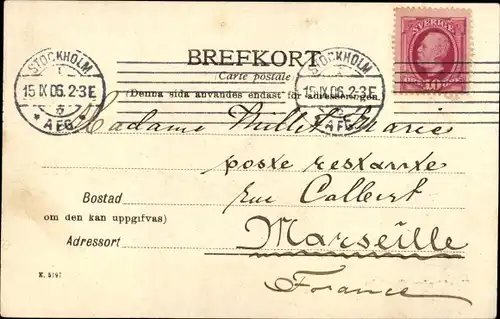 STOCKHOLM
1
15 IX 06. 2-3 E
★ AFG. ★
BREFKORT
(Carte postale)
(Denna sida användes endast för adresseringen.)
STOCKHOLM
1
15 IX 06. 2-3 E
AFG
SVERIGE
10
Madame Millet Marie
poste restante
Rue Colbert
Bostad
om den kan uppgifvas)
Marseille
Adressort
France
K. 5191